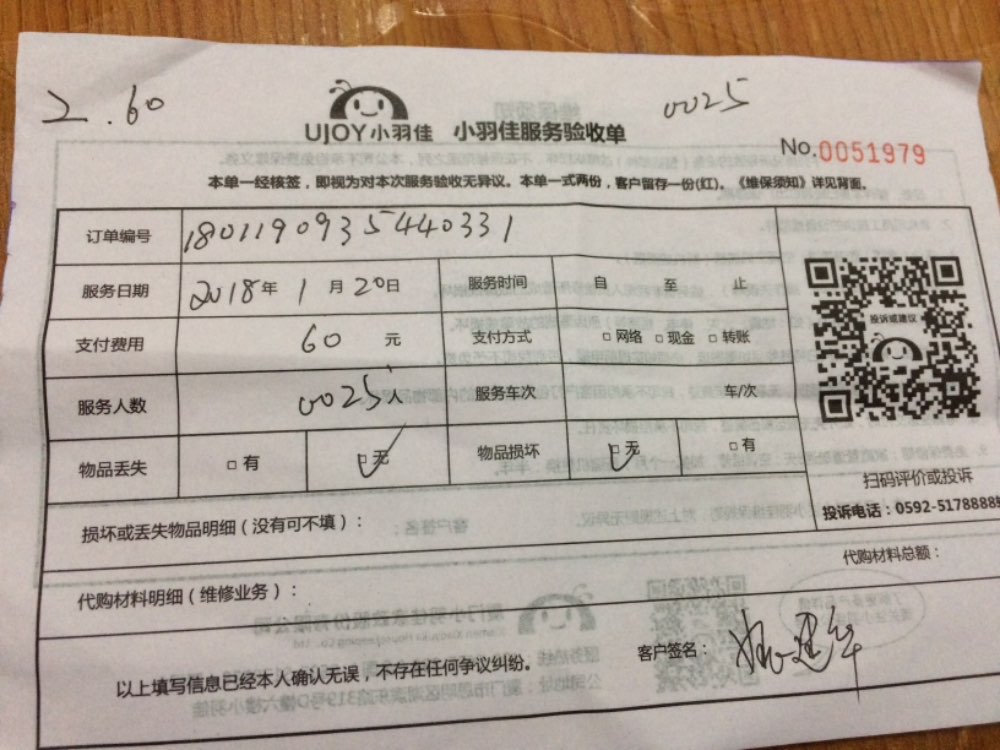 2.60
0025
UJOY小羽佳 小羽佳服务验收单
No.0051979
本单一经核签，即视为对本次服务验收无异议。本单一式两份，客户留存一份(红)。《维保须知》详见背面。
订单编号 180119093544033 1
服务日期 2018年1月20日 服务时间 自 至 止
支付费用 60 元 支付方式 □网络 □现金 □转账
服务人数 0025人 服务车次 车/次
物品丢失 □有 □无 物品损坏 □无 □有
投诉或建议
扫码评价或投诉
投诉电话：0592-5178888
损坏或丢失物品明细（没有可不填）：
代购材料明细（维修业务）：
代购材料总额：
以上填写信息已经本人确认无误，不存在任何争议纠纷。
客户签名：